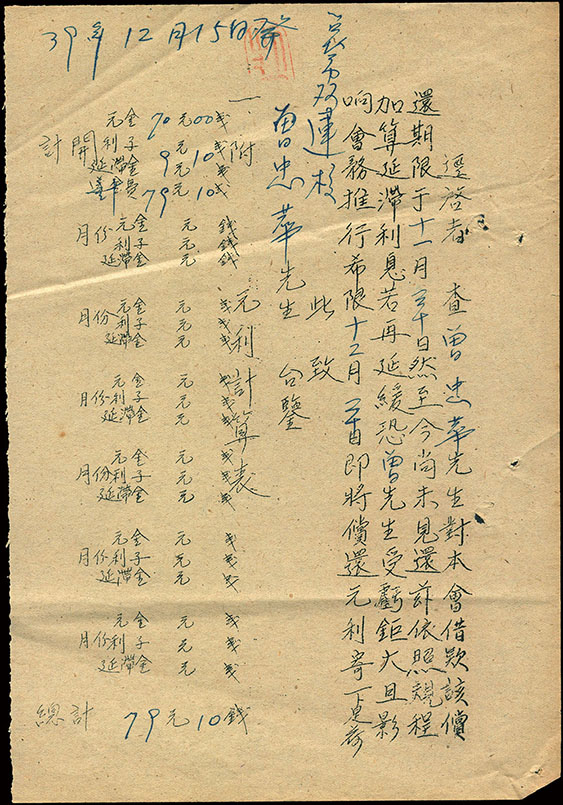 39年12月15日發
逕啓者 查曾忠華先生對本會借欵該償
還期限于十一月三十日然至今尚未見還茲依照規程
加算延滯利息若再延緩恐曾先生受虧鉅大且影
响會務推行希限十二月二十日即將償還元利寄下是荷
此致
曾忠華先生 台鑒
一、附 元利計算表
元金 70元00戋
利子 元 戋
延滯金 9元10戋
計 79元10戋
月份 元金 元 錢
利子 元 錢
延滯金 元 錢
月份 元金 元 戋
利子 元 戋
延滯金 元 戋
月份 元金 元 戋
利子 元 戋
延滯金 元 戋
月份 元金 元 戋
利子 元 戋
延滯金 元 戋
月份 元金 元 戋
利子 元 戋
延滯金 元 戋
月份 元金 元 戋
利子 元 戋
延滯金 元 戋
總計 79元10錢